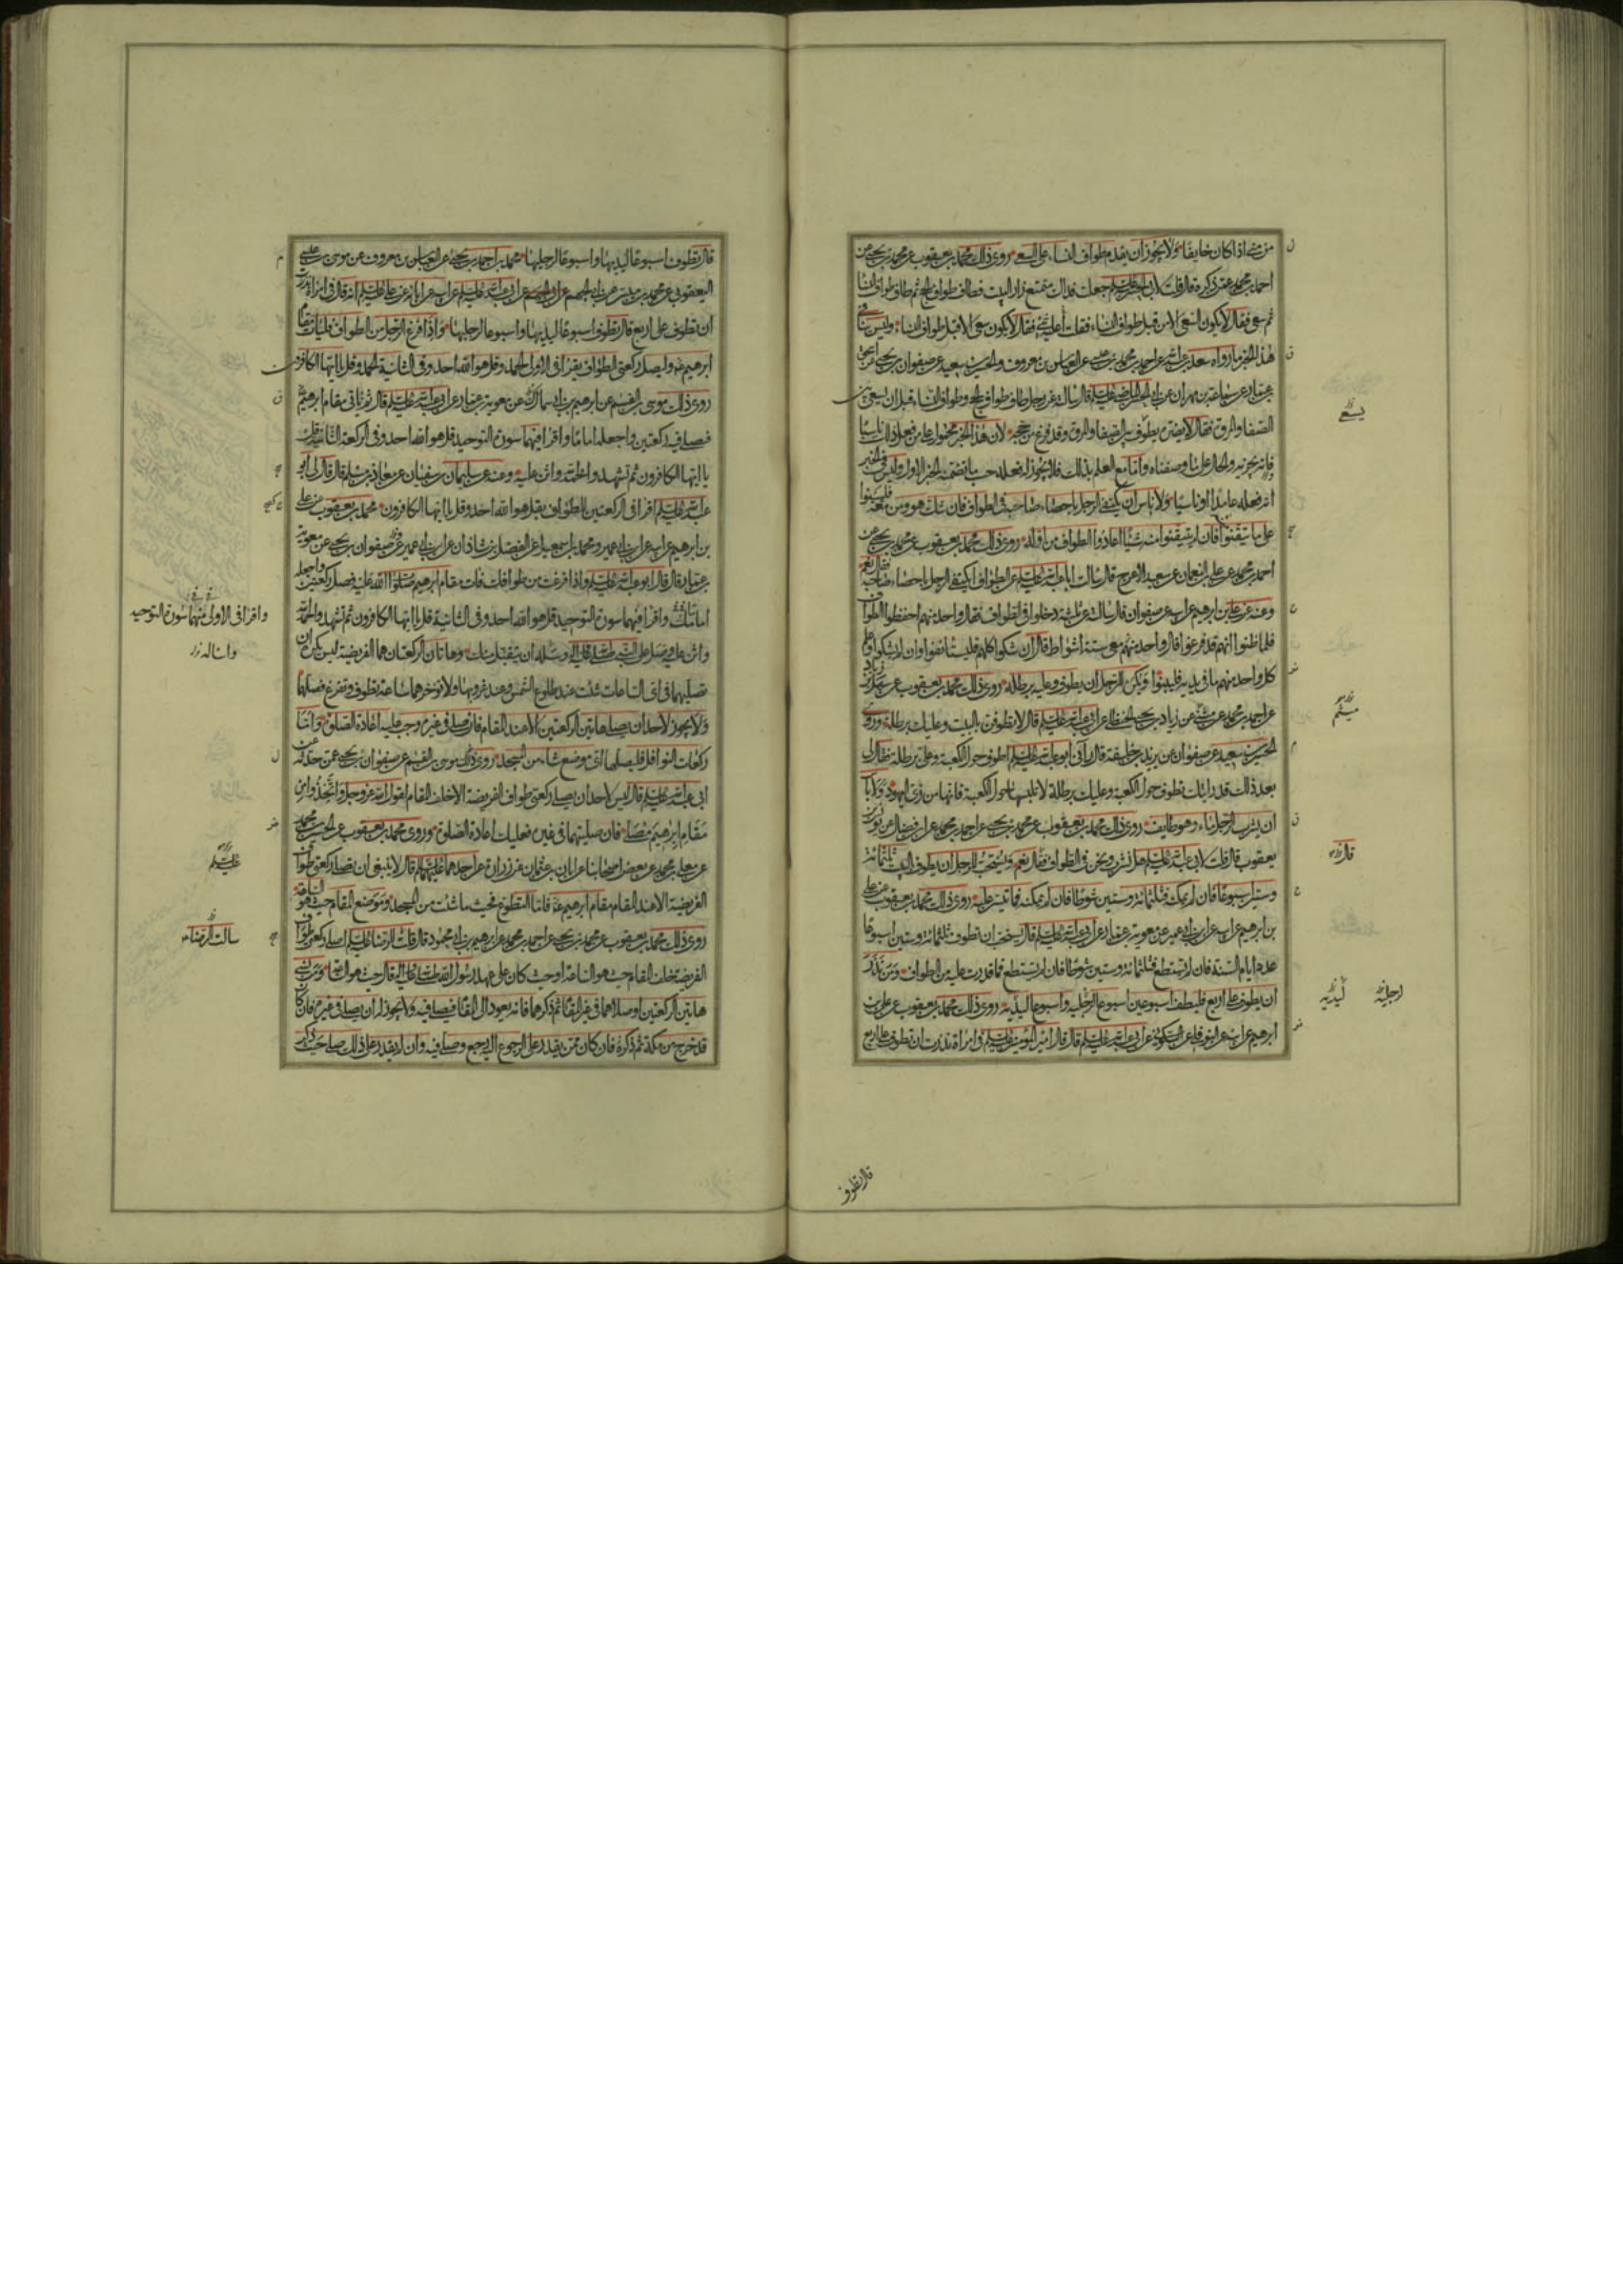 من منى اذا كان خايفا ولا يجوز ان يقدم طواف النساء على السعى روى ذلك محمد بن يعقوب عن محمد بن يحيى عن
احمد بن محمد عمن ذكره قال قلت لابى الحسن عليه السلم جعلت فداك متمتع زار البيت فطاف طواف الحج ثم طاف طواف النسا
ثم سعى فقال لا يكون السعى الا من قبل طواف النساء فقلت أعليه شئ فقال لا يكون سعى الا قبل طواف النساء وليس ينافى
هذا الخبر ما رواه سعد بن عبد الله عن احمد بن محمد عن العباس بن معروف والحسين بن سعيد عن صفوان بن يحيى عن اسحق
بن عمار عن سماعة بن مهران عن ابى الحسن الماضى عليه السلم قال سالته عن رجل طاف طواف الحج وطواف النساء قبل ان يسعى بين
الصفا والمروة فقال لا يضره يطوف بين الصفا والمروة وقد فرغ من حجه لان هذا الخبر محمول على من فعل ذلك ناسيا
فانه يجزيه والحال على ما وصفناه واما مع العلم بذلك فلا يجوز له فعله حسب ما تضمنه الخبر الاول وليس فى الخبر
انه فعله عامدا او ناسيا ولا باس ان يكتفى الرجل باحصاء صاحبه فى الطواف فان شك هو ومن معه فليبنوا
على ما تيقنوا فان لم يتيقنوا منه شيئا اعادوا الطواف من اوله روى ذلك محمد بن يعقوب عن محمد بن يحيى عن
احمد بن محمد عن على بن النعمان عن سعيد الاعرج قال سالت ابا عبد الله عليه السلم عن الطواف ايكتفى الرجل باحصاء صاحبه فقال نعم
وعنه عن على بن ابرهيم عن ابيه عن صفوان قال سالته عن ثلثة دخلوا فى الطواف فقال واحد منهم احفظوا الطواف
فلما ظنوا انهم قد فرغوا قال واحد منهم معى ستة اشواط قال ان شكوا كلهم فليستانفوا وان لم يشكوا وعلم
كل واحد منهم ما فى يديه فليبنوا ويكره للرجل ان يطوف وعليه برطلة روى ذلك محمد بن يعقوب عن سهل بن زياد
عن احمد بن محمد عن مثنى عن زياد بن يحيى الحنظلى عن ابى عبد الله عليه السلم قال لا تطوفن بالبيت وعليك برطلة وروى
الحسين بن سعيد عن صفوان عن يزيد بن خليفة قال رآنى ابو عبد الله عليه السلم اطوف حول الكعبة وعلى برطلة فقال لى
بعد ذلك قد رايتك تطوف حول الكعبة وعليك برطلة لا تلبسها حول الكعبة فانها من زى اليهود ولا باس
ان يشرب الرجل الماء وهو طايف روى ذلك محمد بن يعقوب عن محمد بن يحيى عن احمد بن محمد عن ابن فضال عن يونس بن
يعقوب قال قلت لابى عبد الله عليه السلم هل نشرب ونحن فى الطواف فقال نعم ويستحب للرجل ان يطوف بالبيت ثلثمائة
وستين اسبوعا فان لم يمكنه فثلثمائة وستين شوطا فان لم يمكنه فما تيسر عليه روى ذلك محمد بن يعقوب عن على
بن ابرهيم عن ابيه عن ابن ابى عمير عن معوية بن عمار عن ابى عبد الله عليه السلم قال يستحب ان تطوف ثلثمائة وستين اسبوعا
عدد ايام السنة فان لم تستطع فثلثمائة وستين شوطا فان لم تستطع فما قدرت عليه من الطواف ومن نذر
ان يطوف على اربع فليطف اسبوعين اسبوع لرجليه واسبوعا ليديه روى ذلك محمد بن يعقوب عن على بن
ابرهيم عن ابيه عن النوفلى عن السكونى عن ابى عبد الله عليه السلم قال قال امير المومنين عليه السلم فى امراة نذرت ان تطوف على اربع
يسع
ميثم
قال
لرجليه ليديه
قال تطوف
قال تطوف اسبوعا ليديها واسبوعا لرجليها محمد بن احمد بن يحيى عن العباس بن معروف عن موسى بن عيسى
اليعقوبى عن محمد بن ميسر عن ابى الجهم عن ابى عبد الله عليه السلم عن ابيه عن ابائه عن على عليه السلم انه قال فى امراة نذرت
ان تطوف على اربع قال تطوف اسبوعا ليديها واسبوعا لرجليها واذا فرغ الرجل من الطواف فليات مقام
ابرهيم وليصل ركعتى الطواف يقرا فى الاولى الحمد وقل هو الله احد وفى الثانية الحمد وقل يا ايها الكافرون
روى ذلك موسى بن القسم عن ابرهيم بن ابى سماك عن معوية بن عمار عن ابى عبد الله عليه السلم قال ثم تاتى مقام ابرهيم
فصلى فيه ركعتين واجعله اماما واقرا فيهما سورة التوحيد قل هو الله احد وفى الركعة الثانية قل
يا ايها الكافرون ثم تشهد واحمد الله واثن عليه وعنه عن سليمان بن سفيان عن معاذ بن مسلم قال قال لى ابو
عبد الله عليه السلم اقرا فى الركعتين للطواف بقل هو الله احد وقل يا ايها الكافرون محمد بن يعقوب عن على
بن ابرهيم عن ابيه عن ابن ابى عمير ومحمد بن اسمعيل عن الفضل بن شاذان عن ابن ابى عمير عن صفوان بن يحيى عن معوية
بن عمار قال قال ابو عبد الله عليه السلم واذا فرغت من طوافك فات مقام ابرهيم صلوات الله عليه فصل ركعتين واجعله
امامك واقرا فيهما سورة التوحيد قل هو الله احد وفى الثانية قل يا ايها الكافرون ثم تشهد واحمد الله
واثن عليه وصل على النبى صلى الله عليه واله وسله ان يتقبل منك وهاتان الركعتان هما الفريضة ليس يكره ان
تصليهما فى اى الساعات شئت عند طلوع الشمس وعند غروبها ولا تؤخرهما ساعة تطوف وتفرغ فصلهما
ولا يجوز لاحد ان يصلى هاتين الركعتين الا عند المقام فان صلى فى غيره وجب عليه اعادة الصلوة واما
ركعات النوافل فليصلها اى موضع شاء من المسجد روى ذلك موسى بن القسم عن صفوان بن يحيى عمن حدثه عن
ابى عبد الله عليه السلم قال ليس لاحد ان يصلى ركعتى طواف الفريضة الا خلف المقام لقول الله عز وجل واتخذوا من
مقام ابرهيم مصلى فان صليتهما فى غيره فعليك اعادة الصلوة وروى محمد بن يعقوب عن الحسين بن محمد
عن معلى بن محمد عن بعض اصحابنا عن ابان بن عثمان عن زرارة عن احدهما عليهما السلم قال لا ينبغى ان يصلى ركعتى طواف
الفريضة الا عند المقام مقام ابرهيم فاما التطوع فحيث ما شئت من المسجد وموضع المقام حيث هو الساعة
روى ذلك محمد بن يعقوب عن محمد بن يحيى عن احمد بن محمد عن ابرهيم بن ابى محمود قال قلت للرضا عليه السلم اصلى ركعتى طواف
الفريضة خلف المقام حيث هو الساعة او حيث كان على عهد رسول الله صلى الله عليه واله قال حيث هو الساعة ومن نسى
هاتين الركعتين او صلاهما فى غير المقام ثم ذكرهما فانه يعود الى المقام فيصلى فيه ولا يجوز له ان يصلى فى غيره فان كان
قد خرج من مكة ثم ذكره فان كان ممن يقدر على الرجوع اليه رجع وصلى فيه وان لم يقدر على ذلك صلى حيث ذكر
واقرا فى الاولى منهما سورة التوحيد
واساله
عليه السلم
سالت الرضا